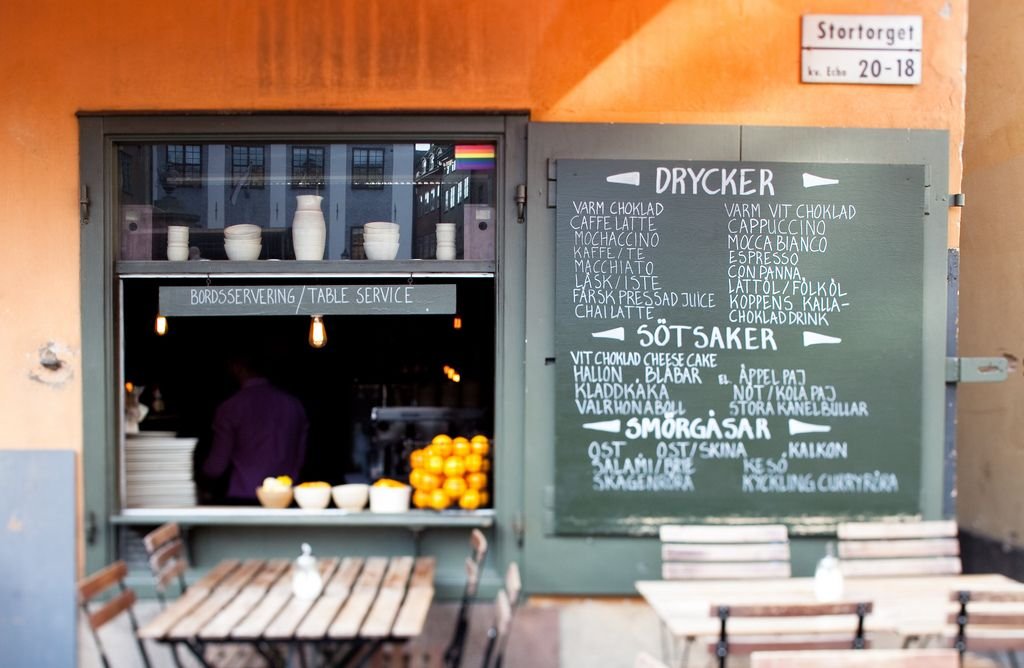 Stortorget
kv. Echo 20-18
BORDSSERVERING/TABLE SERVICE
DRYCKER
VARM CHOKLAD
CAFFE LATTE
MOCHACCINO
KAFFE/TE
MACCHIATO
LÄSK/ISTE
FÄRSK PRESSAD JUICE
CHAI LATTE
VARM VIT CHOKLAD
CAPPUCCINO
MOCCA BIANCO
ESPRESSO
CON PANNA
LÄTTÖL/FOLKÖL
KOPPENS KALLA-
CHOKLADDRINK
SÖTSAKER
VIT CHOKLAD CHEESE CAKE
HALLON, BLÅBÄR EL. ÄPPELPAJ
KLADDKAKA NÖT/KOLA PAJ
VALRHONABOLL STORA KANELBULLAR
SMÖRGÅSAR
OST, OST/SKINA, KALKON
SALAMI/BRIE KESO
SKAGENRÖRA KYCKLING CURRYRÖRA